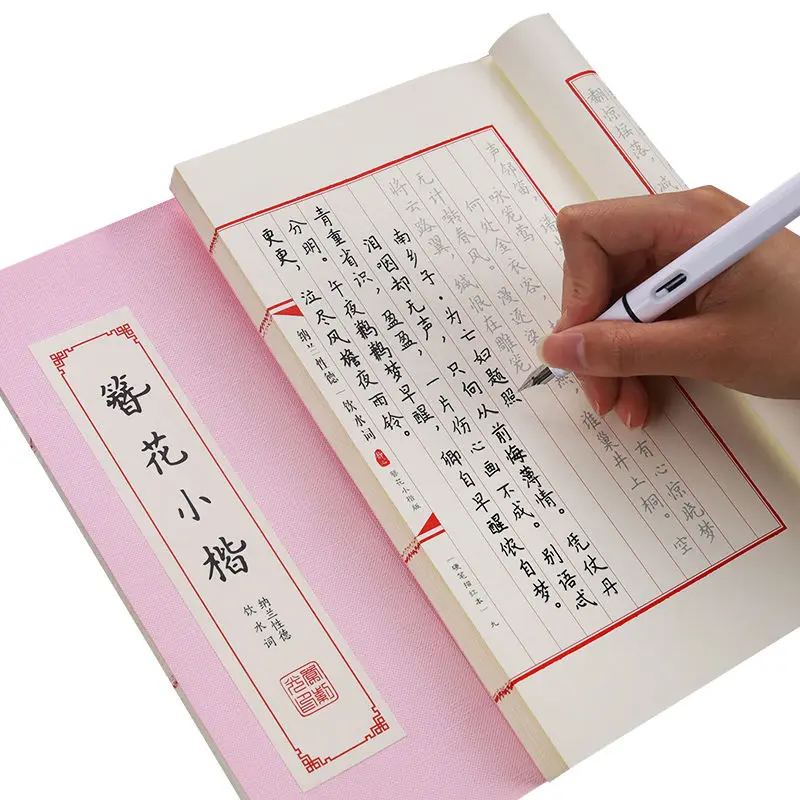 翻惊摇落，减
声邻笛，
咏笼莺
何处金衣客，
有心惊晓梦
无计啭春风。漫逐梁
谁巢井上桐。空
将云路翼，缄恨在雕笼
南乡子·为亡妇题照
泪咽却无声，只向从前悔薄情。凭仗丹
青重省识，盈盈，一片伤心画不成。别语忒
分明。午夜鹣鹣梦早醒，卿自早醒侬自梦。
更更，泣尽风檐夜雨铃。
纳兰性德｜饮水词
簪花小楷版
（硬笔描红本）九
簪花小楷
纳兰性德
饮水词